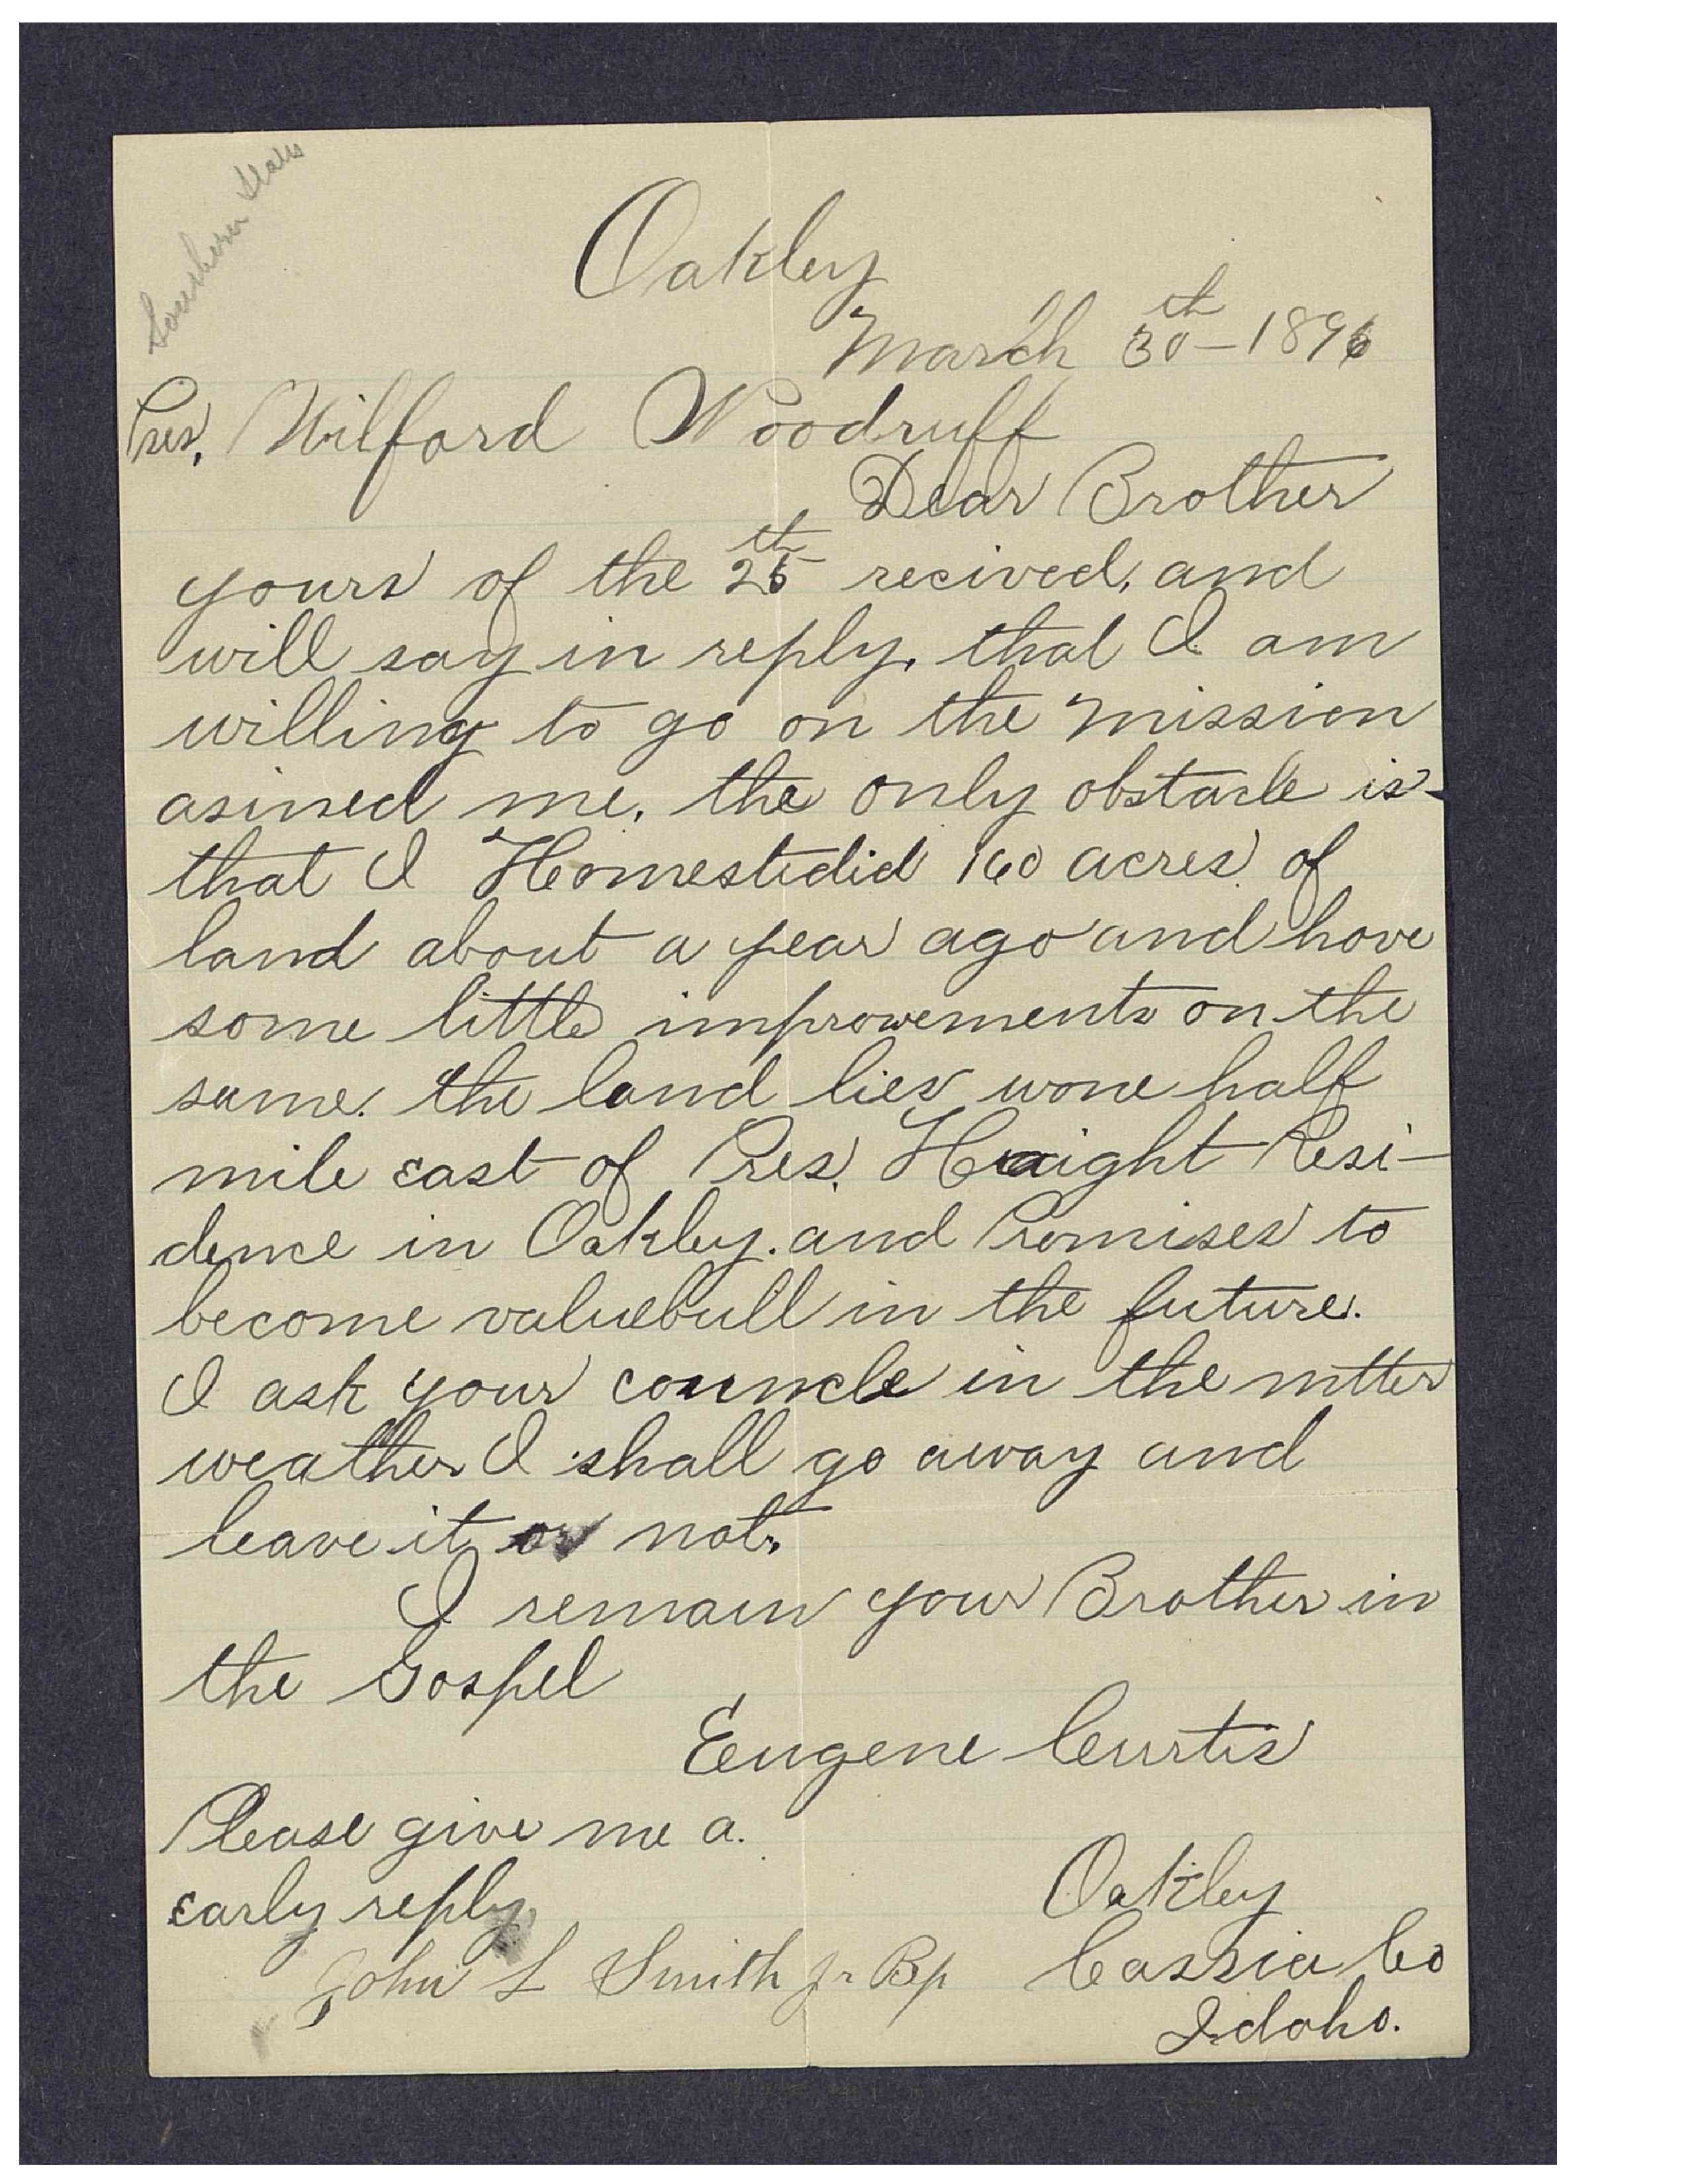 Southern States
Oakley
March 30th - 1896
Pres. Wilford Woodruff
Dear Brother
yours of the 25th recived, and
will say in reply, that I am
willing to go on the mission
asined me, the only obstacle is
that I Homestedid 160 acres of
land about a year ago and have
some little improvements on the
same. the land lies wone half
mile east of Pres. Haight Resi-
dence in Oakley. and Promises to
become valuebull in the future.
I ask your councle in the mtter
weather I shall go away and
leave it or not.
I remain your Brother in
the Gospel
Eugene Curtis
Please give me a.
early reply
Oakley
John L Smith Jr Bp
Cassia Co
Idaho.